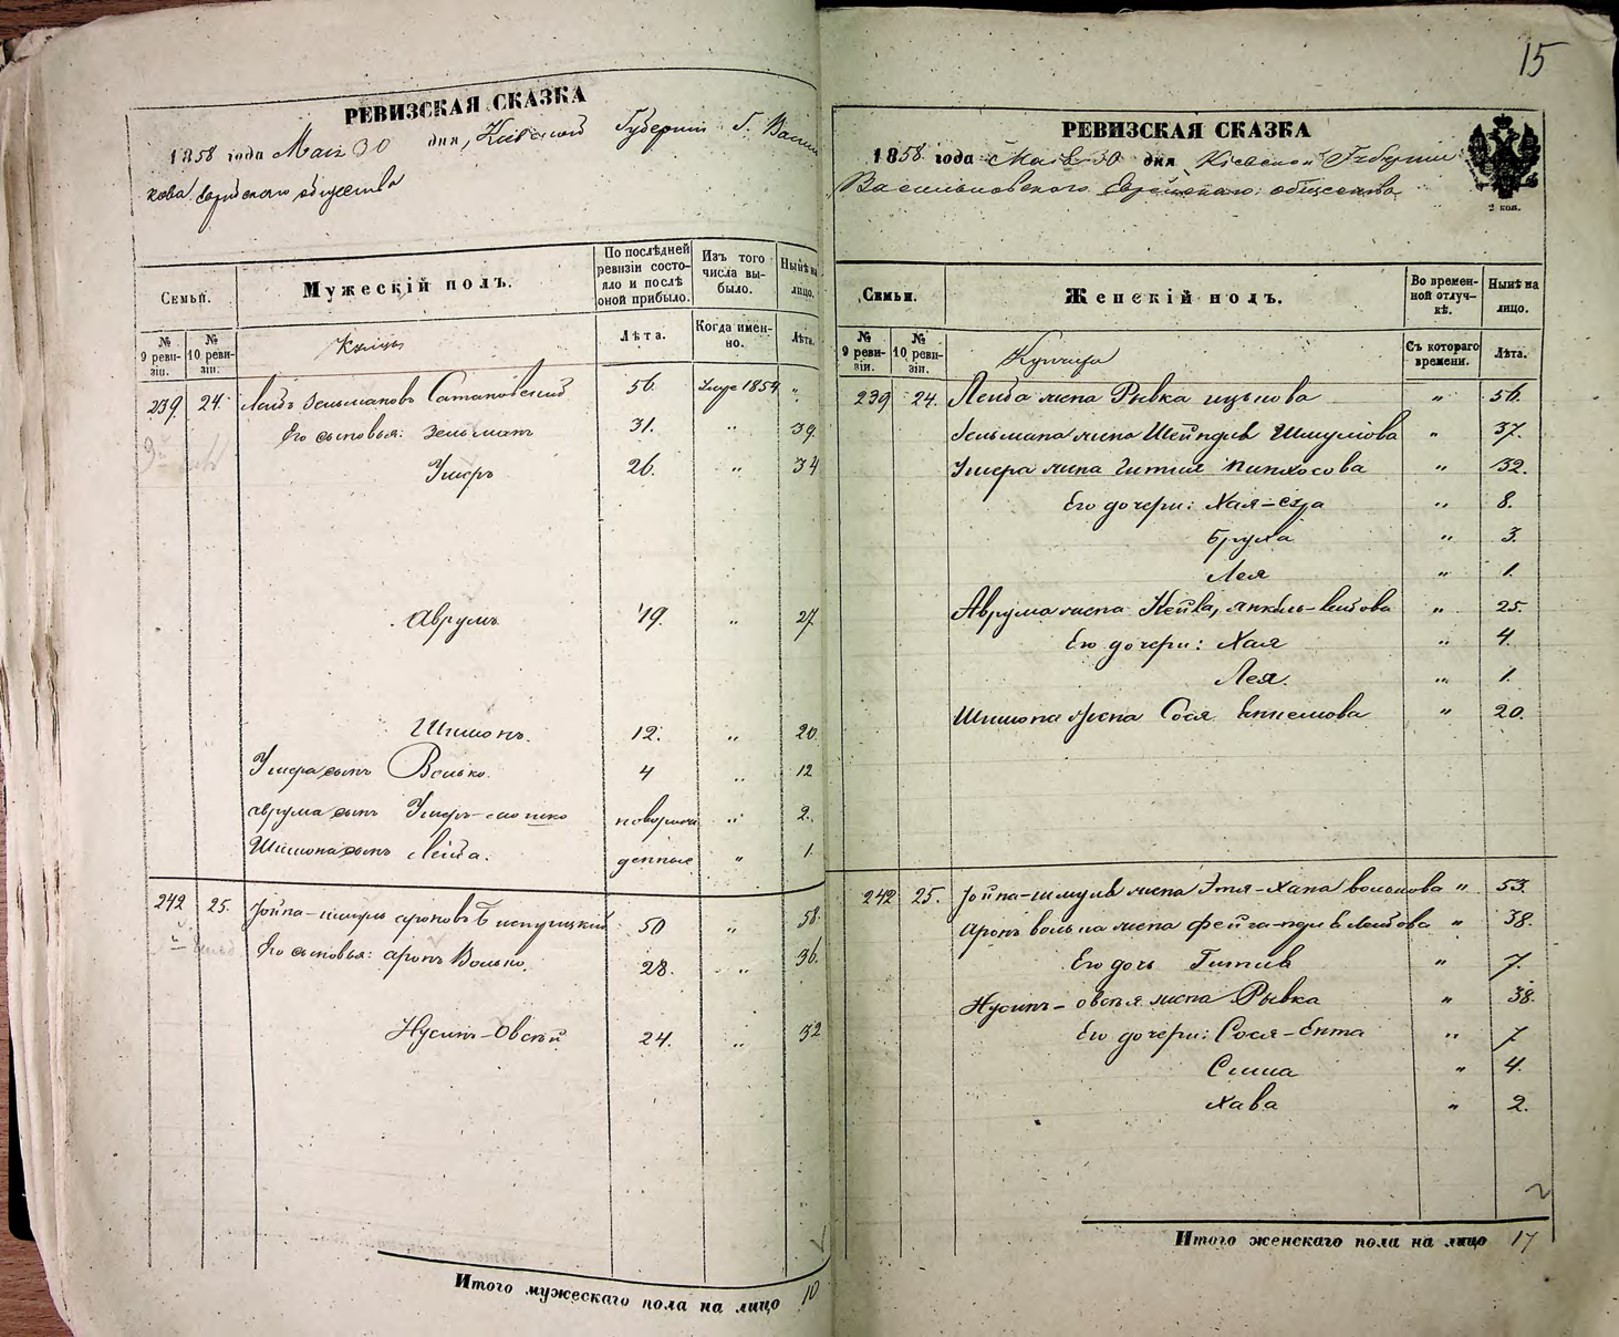 РЕВИЗСКАЯ СКАЗКА
1858 года Мая 30 дня, Киевской Губернии Г. Василь
кова Еврейскаго общества
Семьи.
Мужескій полъ.
По послѣдней ревизіи состояло и послѣ оной прибыло.
Изъ того числа выбыло.
Нынѣ на лицо.
№ 9 ревизіи.
№ 10 ревизіи.
Купцы
Лѣта.
Когда именно.
Лѣта.
239 24. Лейба Зельмановъ Сатановский 56. 1854 "
Его сыновья: Зельманъ 31. " 39.
Умеръ 26. " 34
Аврумъ 19. " 27
Шимонъ. 12. " 20
Умера сынъ Волько. 4 " 12
Аврума сынъ Умеръ- новорож " 2.
Шимона сынъ Лейба. денные " 1.
242 25. Іойна-шмуль Ароновъ 50 " 58.
Его сыновья: Аронъ Волько. 28. " 36.
Нусинъ-Овсѣй 24. " 32
Итого мужескаго пола на лицо 10
15
РЕВИЗСКАЯ СКАЗКА
1858 года Мая 30 дня Кіевской Губерніи
Васильковскаго Еврейскаго общества
2 коп.
Семьи.
Женскій полъ.
Во временной отлучкѣ.
Нынѣ на лицо.
№ 9 ревизіи.
№ 10 ревизіи.
Купчиха
Съ котораго времени.
Лѣта.
239 24. Лейба жена Рывка ицькова " 56.
Зельмана жена Шейндля Шмулева " 37.
Умера жена Гитля Пинхосова " 32.
Его дочери: Хая-сура " 8.
Бруха " 3.
Лея " 1.
Аврума жена Кейла, янкель-лейбова " 25.
Его дочери: Хая " 4.
Лея. " 1.
Шимона жена Сося " 20.
242 25. Іойна-шмуля жена Этя-Хана волькова " 53.
Аронъ волька жена фейга-лейбова " 38.
Его дочь Гитля " 7.
Нусинъ-овсѣя жена Рывка " 38.
Его дочери: Сося-Ента " 7
Слима " 4.
Хава " 2.
Итого женскаго пола на лицо 17